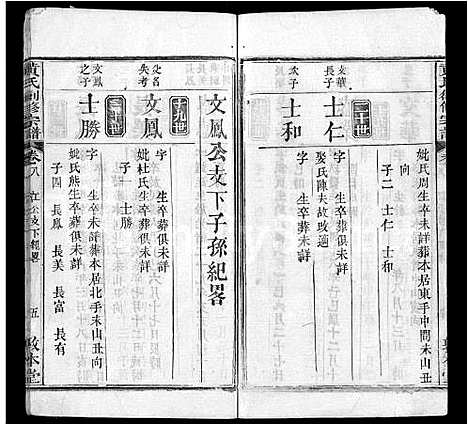 妣氏周生卒未詳葬本居東手中間未山丑
向
子二 士仁 士和
二十世
文華
長子
士仁
字 生卒葬俱未詳
娶氏陳夫故改適
次子
士和
字 生卒葬俱未詳
文鳳公支下子孫紀畧
十九世
父名
失考
文鳳
字 生卒葬俱未詳
妣氏杜生卒葬俱未詳
子一 士勝
二十世
文鳳
之子
士勝
字 生卒未詳葬本居北手未山丑向
妣氏熊生卒葬俱未詳
子四 長鳳 長美 長富 長有
黃氏創修宗譜
卷八
五
敦本堂